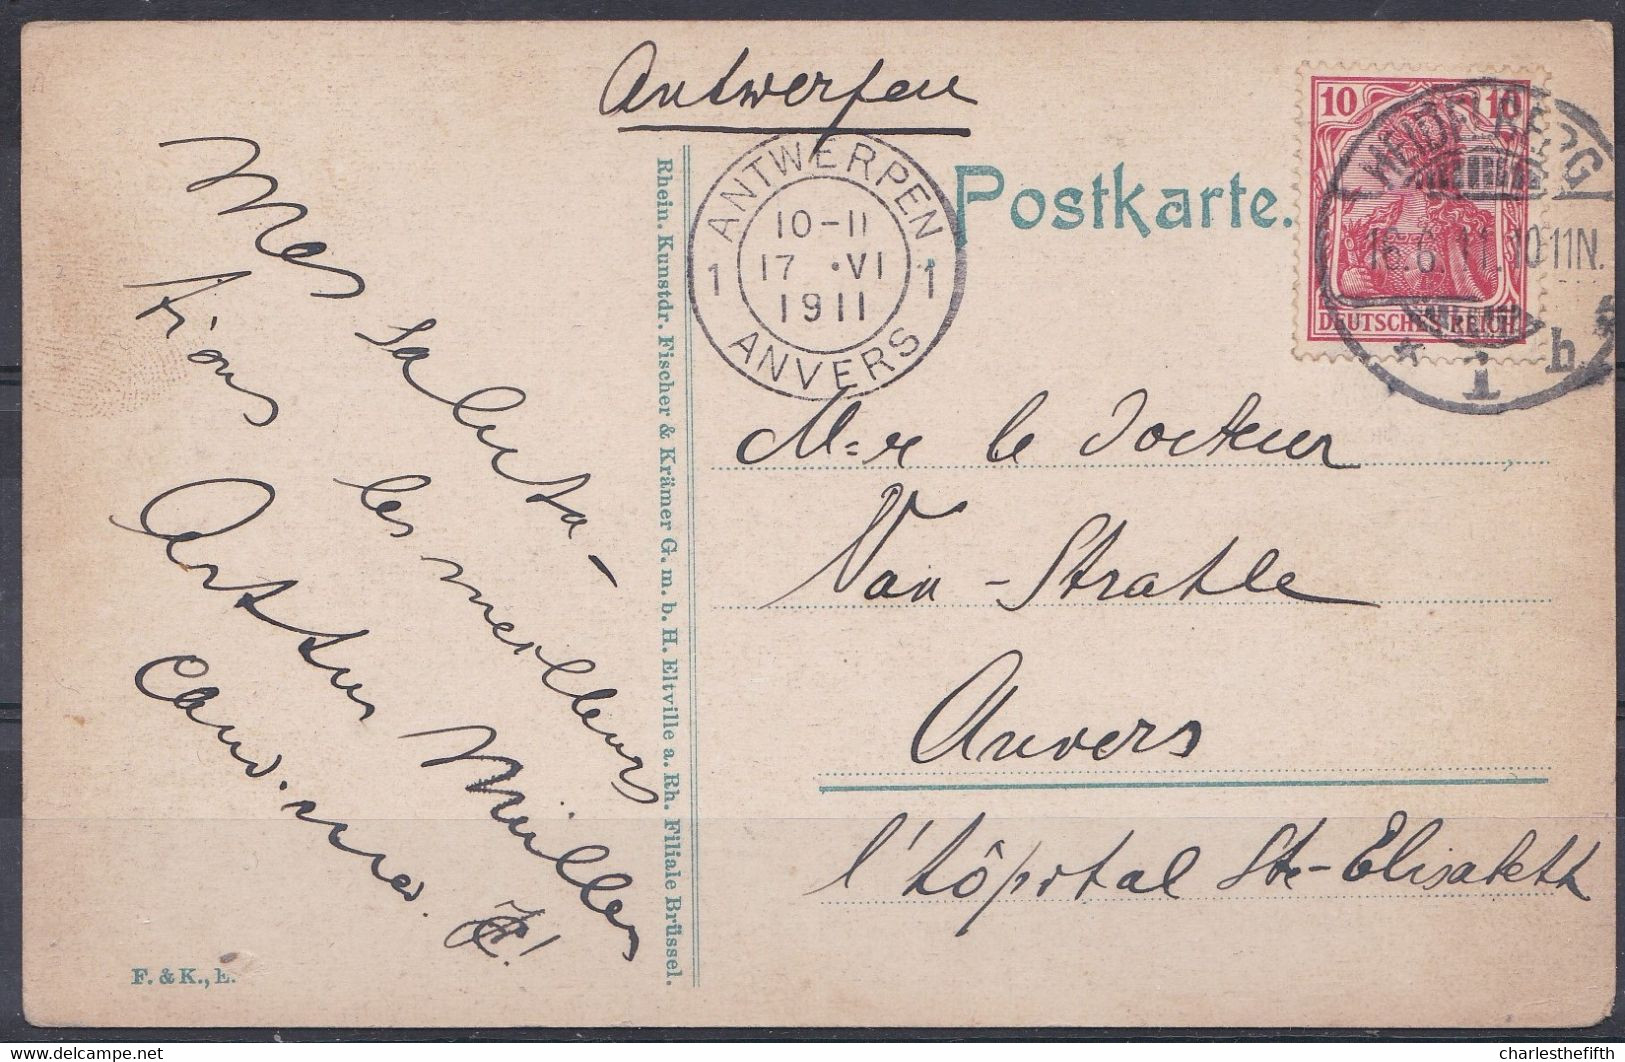 Antwerpen
Postkarte.
10 10
DEUTSCHES REICH
HEIDELBERG
16.6.11.10-11N.
* 1 b.
ANTWERPEN
10-11
1 17 ·VI 1
1911
ANVERS
Mes saluta-
tions les meilleurs
Arthur Müller
cand. med.
Mr le Docteur
Van-Stratle
Anvers
l'hôpital Ste-Elisabeth
Rhein. Kunstdr. Fischer & Krämer G. m. b. H. Eltville a. Rh. Filiale Brüssel.
F. & K., E.
charlesthefifth
www.delcampe.net